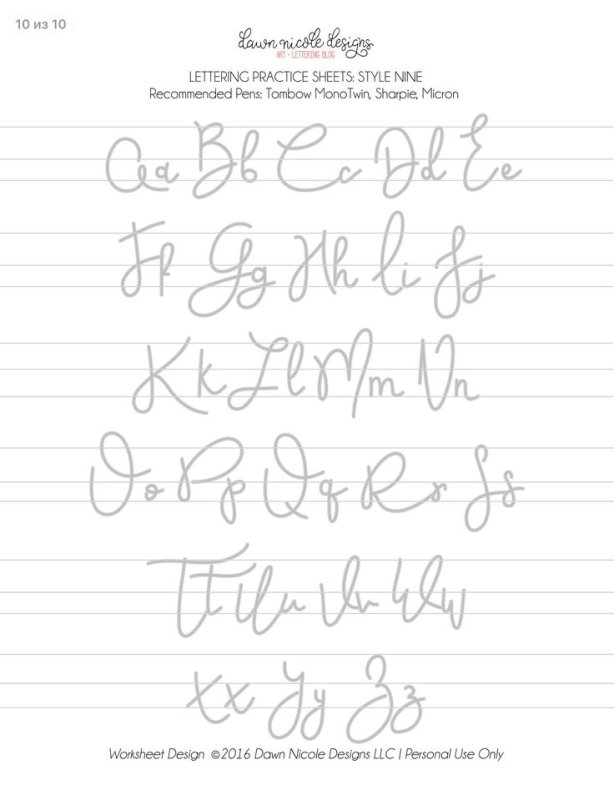 10 из 10
dawn nicole designs
ART + LETTERING BLOG
LETTERING PRACTICE SHEETS: STYLE NINE
Recommended Pens: Tombow MonoTwin, Sharpie, Micron
Aa Bb Cc Dd Ee
Ff Gg Hh Ii Jj
Kk Ll Mm Nn
Oo Pp Qq Rr Ss
Tt Uu Vv Ww
Xx Yy Zz
Worksheet Design ©2016 Dawn Nicole Designs LLC | Personal Use Only